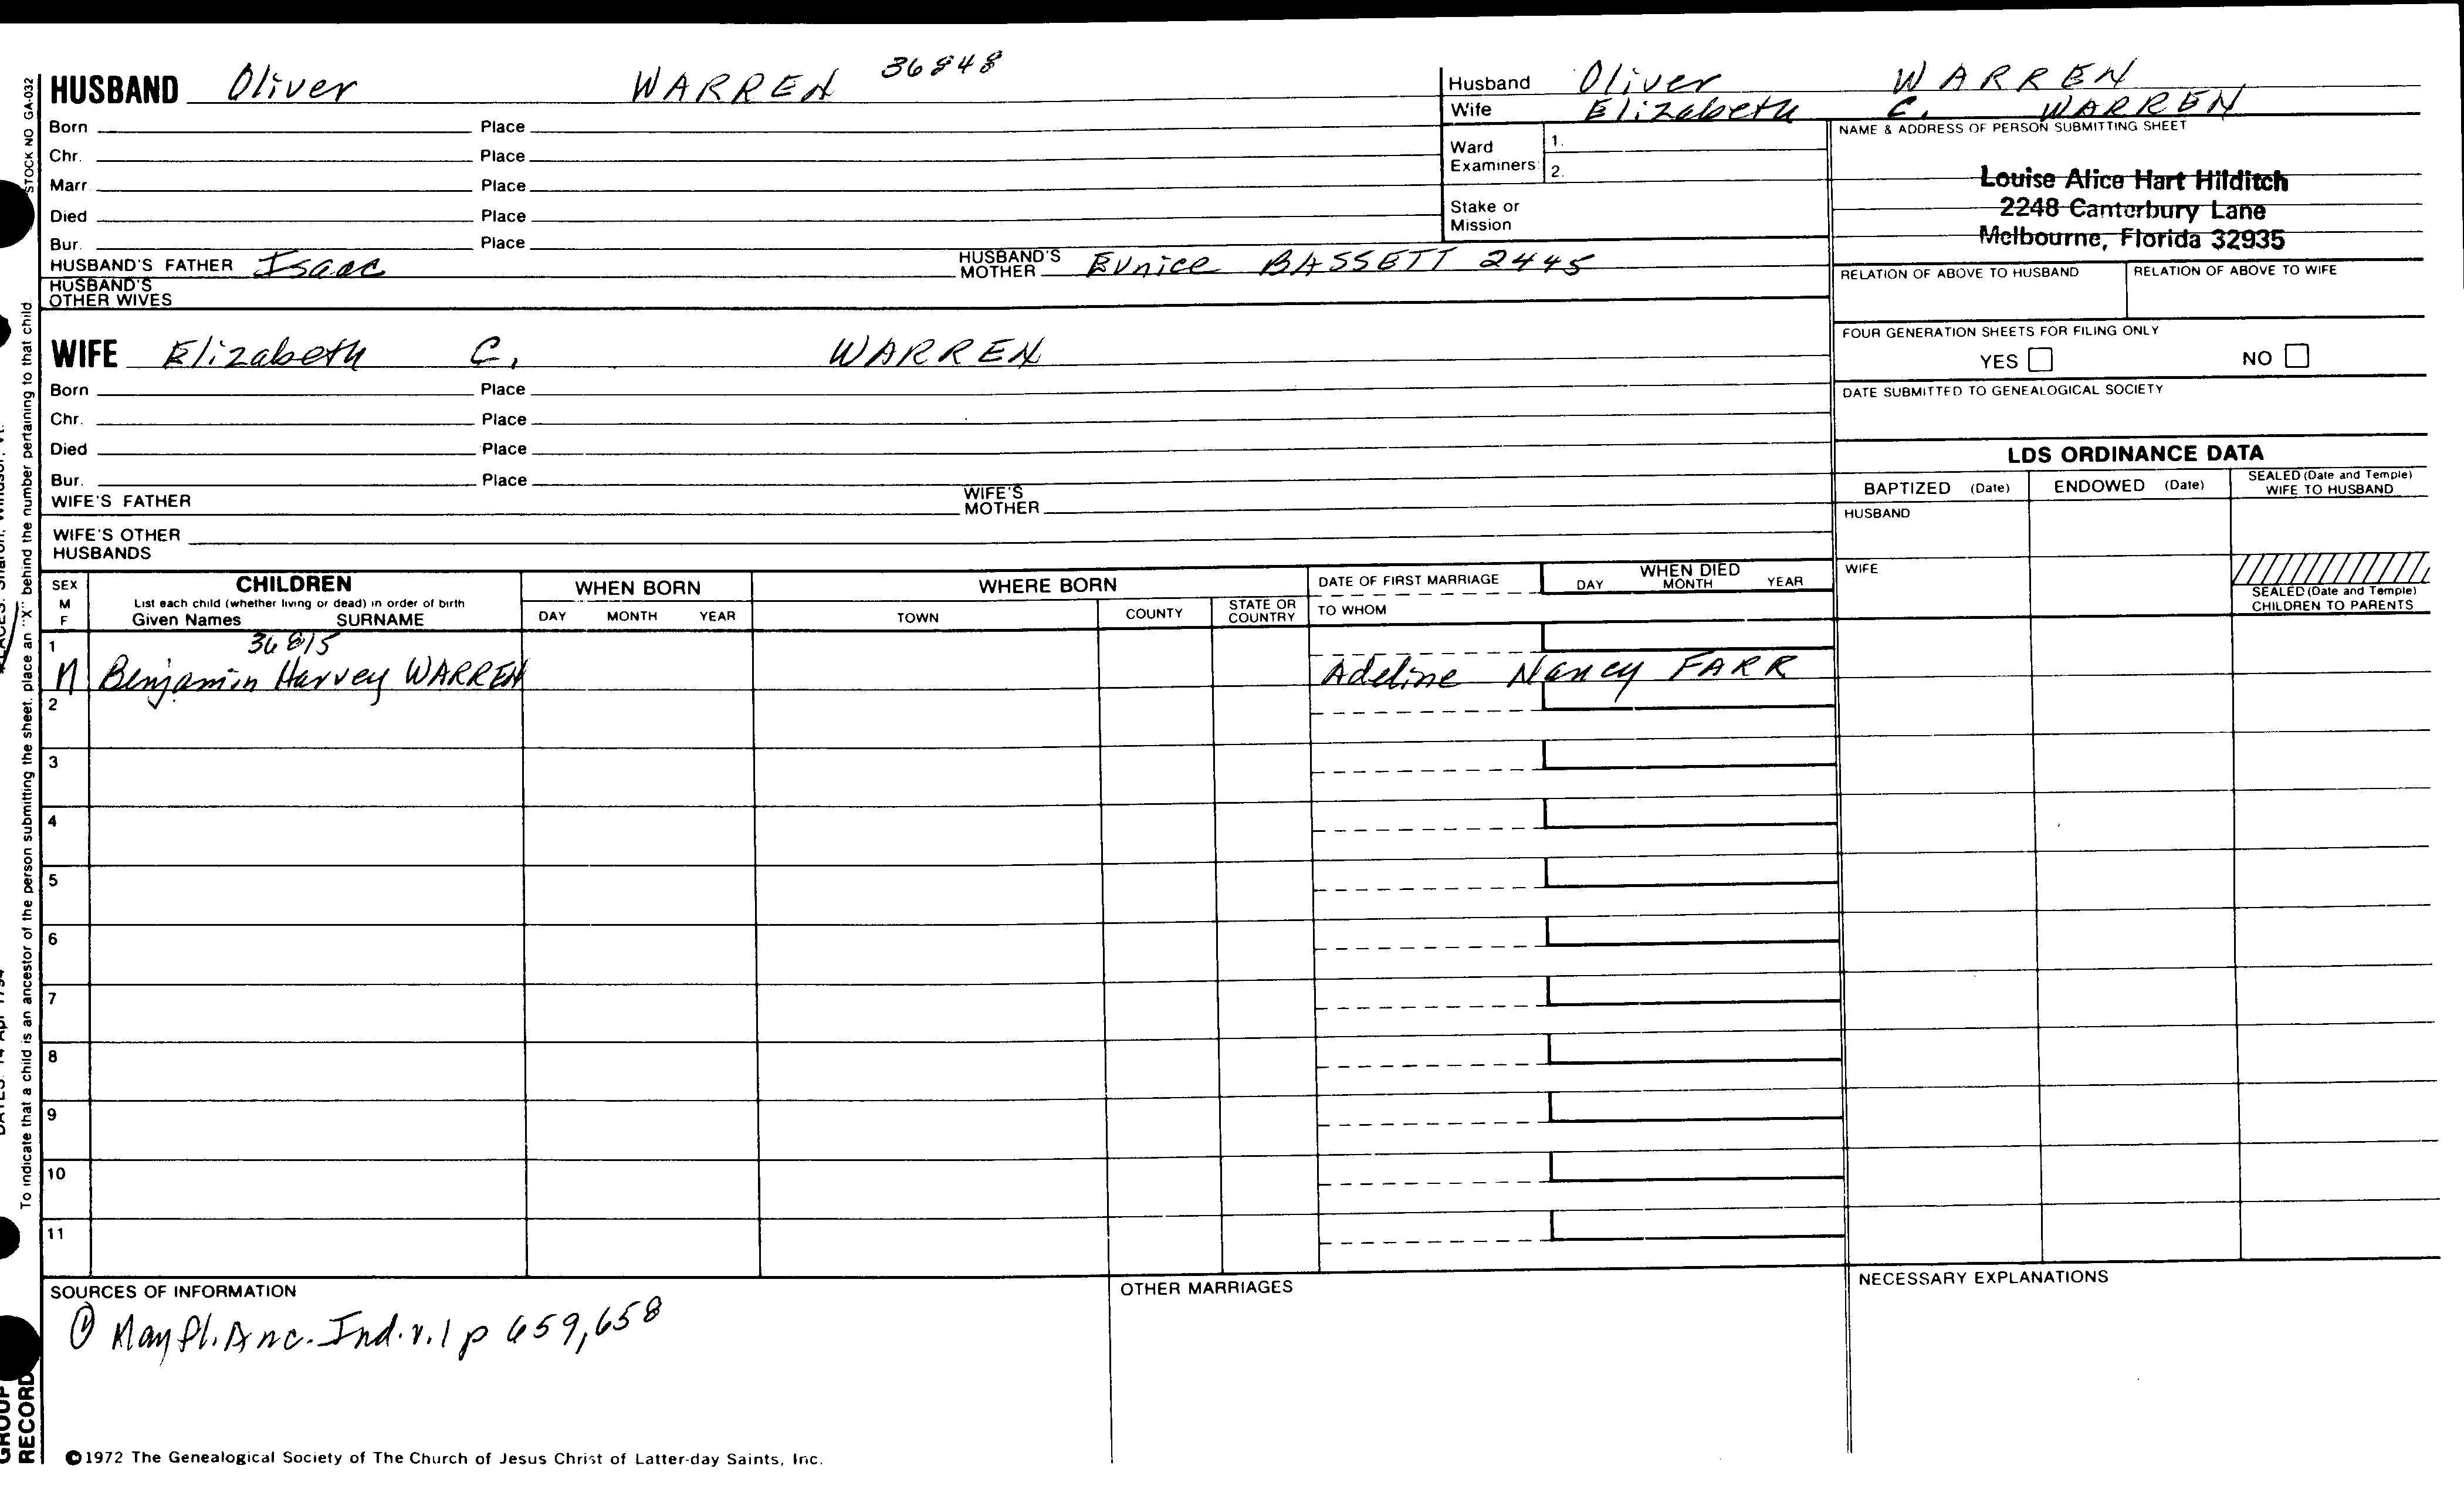 HUSBAND Oliver WARREN 36848
Born Place
Chr. Place
Marr. Place
Died Place
Bur. Place
HUSBAND'S FATHER Isaac HUSBAND'S MOTHER Eunice BASSETT 2445
HUSBAND'S OTHER WIVES
WIFE Elizabeth C. WARREN
Born Place
Chr. Place
Died Place
Bur. Place
WIFE'S FATHER WIFE'S MOTHER
WIFE'S OTHER HUSBANDS
Husband Oliver WARREN
Wife Elizabeth C. WARREN
Ward Examiners: 1.
2.
Stake or Mission
NAME & ADDRESS OF PERSON SUBMITTING SHEET
Louise Alice Hart Hilditch
2248 Canterbury Lane
Melbourne, Florida 32935
RELATION OF ABOVE TO HUSBAND RELATION OF ABOVE TO WIFE
FOUR GENERATION SHEETS FOR FILING ONLY
YES NO
DATE SUBMITTED TO GENEALOGICAL SOCIETY
LDS ORDINANCE DATA
BAPTIZED (Date) ENDOWED (Date) SEALED (Date and Temple) WIFE TO HUSBAND
HUSBAND
WIFE
SEALED (Date and Temple)
CHILDREN TO PARENTS
SEX M F
CHILDREN
List each child (whether living or dead) in order of birth
Given Names SURNAME
WHEN BORN
DAY MONTH YEAR
WHERE BORN
TOWN COUNTY STATE OR COUNTRY
DATE OF FIRST MARRIAGE
TO WHOM
WHEN DIED
DAY MONTH YEAR
1 36815
M Benjamin Harvey WARREN Adeline Nancy FARR
2
3
4
5
6
7
8
9
10
11
SOURCES OF INFORMATION
① MayFl. Anc. Ind. v. 1 p 659, 658
OTHER MARRIAGES
NECESSARY EXPLANATIONS
©1972 The Genealogical Society of The Church of Jesus Christ of Latter-day Saints, Inc.
STOCK NO GA-032
To indicate that a child is an ancestor of the person submitting the sheet, place an "X" behind the number pertaining to that child
GROUP
RECORD